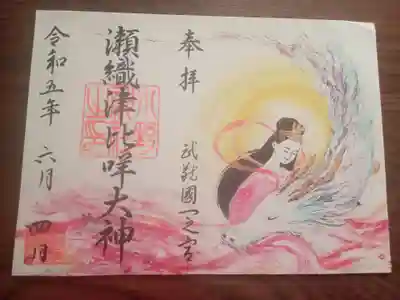 奉拝
武蔵國一之宮
瀬織津比咩大神
令和五年 六月 四日